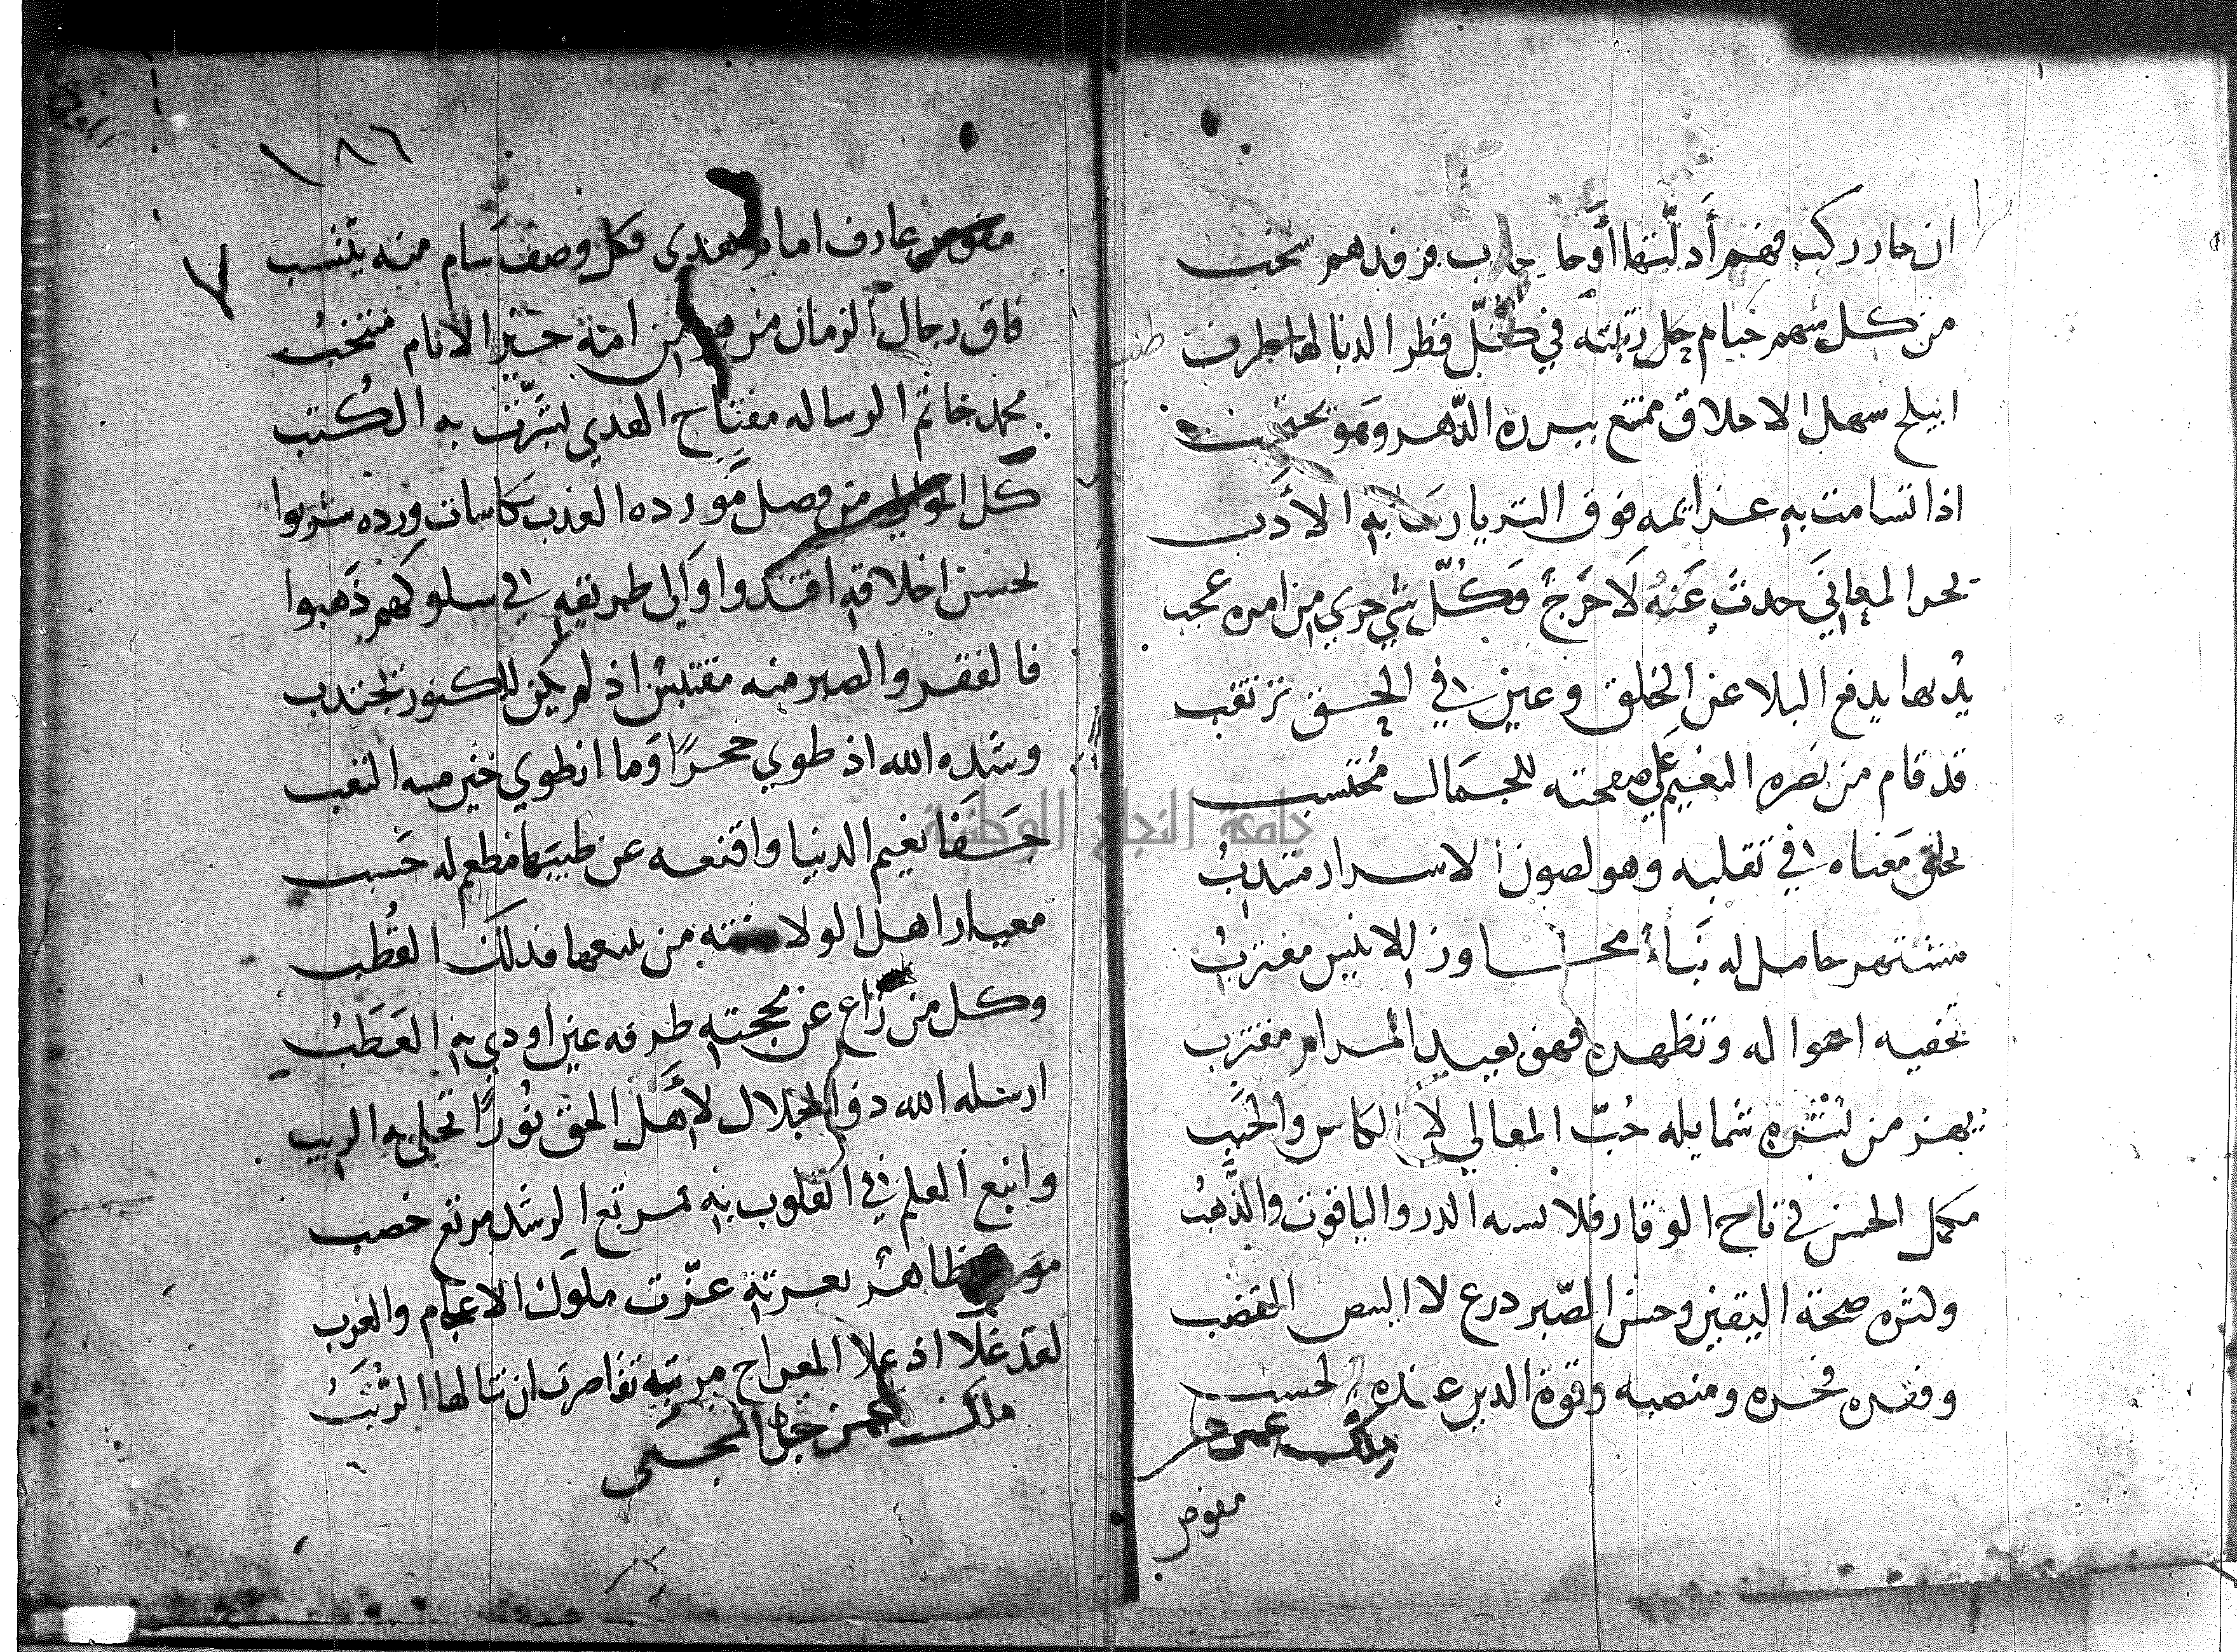 ان حار ركب فهم أدلتها أو حل جدب فرفدهم سحب
من كل شهم خيام جل رتبته في كل قطر الدنا لها طنب
ابلج سهل الاخلاق ممتع يبرره الدهر وهو محتجب
اذا تسامت به عزايمه فوق الثريا رسا به الأدب
بحر المعاني حدث عنه لا حرج وكل شي جري من امره عجب
يد بها يدفع البلا عن الخلق وعين في الحق ترتقب
قد قام من نضره النعيم علي صفحته للجمال محتسب
بخلق مغناه في تقلبه وهو لصون الاسرار منتدب
مشتهر حامل له نبأ مجاور للانيس مغترب
تخفيه اهواله وتظهره فهو بعيد المرام مقترب
يهتز من نشره شمايله حب المعالي لا الكاس والحبب
مكمل الحسن في تاج الوقار فلا الدر والياقوت والذهب
ونثره صحة اليقين وحسن الصبر درع لا البيض القضب
وفقره فخره ومنصبه وقوة الدين عنده الحسب
ملك
مفوض
١٨٦
٧
مفوض عارف امام هدي فكل وصف سام منه ينتسب
فاق رجال الزمان من هو من امة خير الانام منتخب
محمد خاتم الرساله مفتاح الهدي لشرفت به الكتب
كل الموالي من فصل مورده العذب بكاسات ورده شربوا
لحسن اخلاقه اقتدوا والي طريقه في سلوكهم ذهبوا
فالفقر والصبر منه مقتبس اذ لم يكن للكنوز يجتذب
وشده الله اذ طوي حجرا وما انطوي حين مسه التعب
جفا نعيم الدنيا واقنعه عن طيبها مطعم له خشب
معيار اهل الولا سنته من فذلك القطب
وكل من زاغ عن محجته طرفه عين اودي به العطب
ارسله الله ذو الجلال لأهل الحق نورا تجلي به الريب
وانبع العلم في القلوب به مرتع الرشد مرتع خصب
ظاهر بعزته عزت ملوك الاعجام والعرب
لقد علا اذ علا المعراج مرتبة تقاصرت ان تنالها الرتب
ملك
جامعة النجاح الوطنية